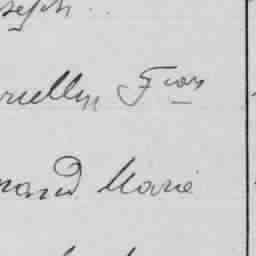 seph
rcellin Fcois
nand Marie